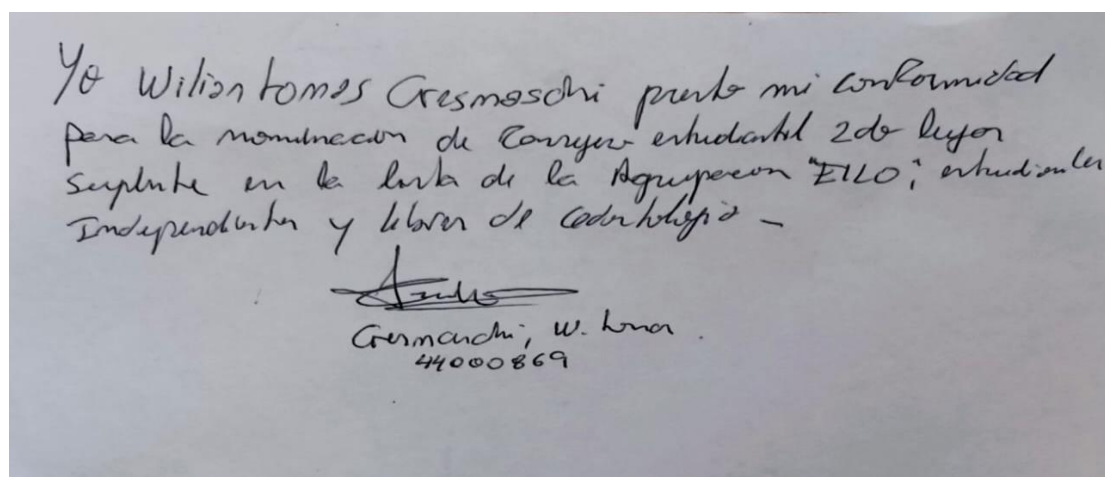 Yo Wilian tomas Cresmaschi presto mi conformidad
para la nominacion de Consejero estudiantil 2do lugar
suplente en la lista de la Agrupacion "EILO", estudiantes
Independientes y libres de odontologia -
Cresmaschi, W. tomas.
44000869